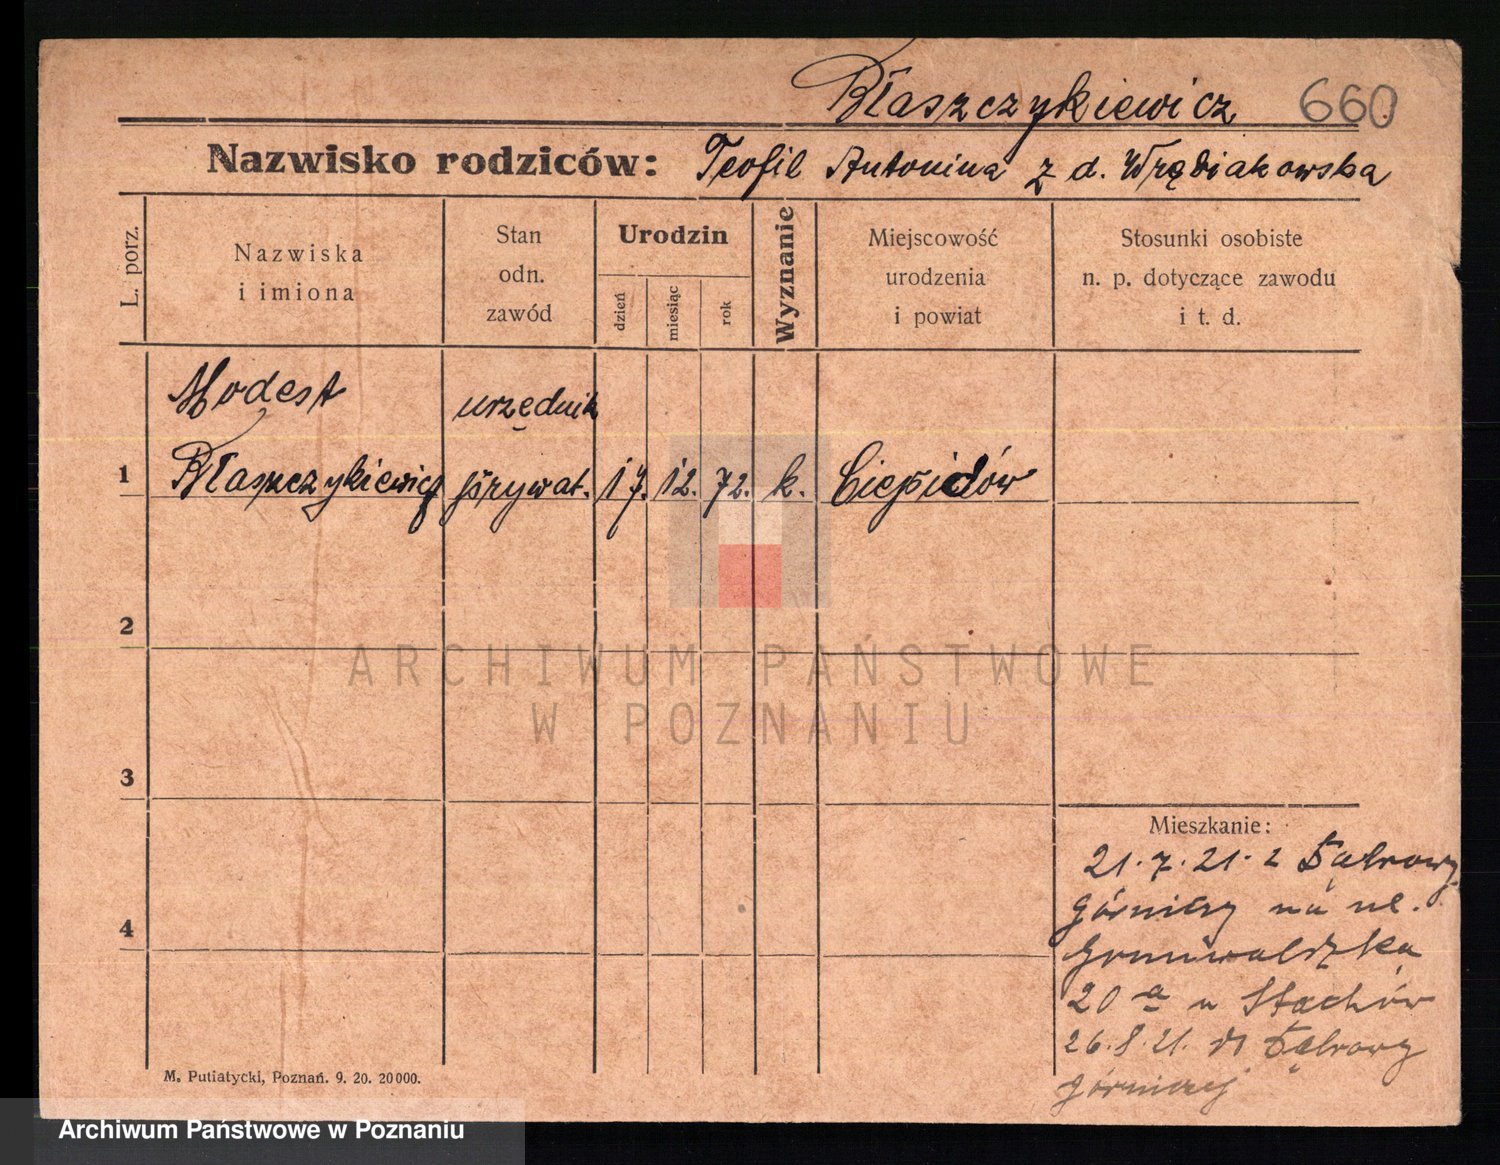 Błaszczykiewicz 660
Nazwisko rodziców: Teofil Antonina z d.
L. porz.
Nazwiska
i imiona
Stan
odn.
zawód
Urodzin
dzień
miesiąc
rok
Wyznanie
Miejscowość
urodzenia
i powiat
Stosunki osobiste
n. p. dotyczące zawodu
i t. d.
Modest urzędnik
1 Błaszczykiewicz prywat. 17. 12. 72. k.
2
ARCHIWUM PAŃSTWOWE
W POZNANIU
3
Mieszkanie:
21.7.21. z Dąbrowy
górniczy na ul.
Grunwaldzka
20 a u Stachów
26.8.21. Dąbrowy
górniczej
4
M. Putiatycki, Poznań. 9. 20. 20000.
Archiwum Państwowe w Poznaniu